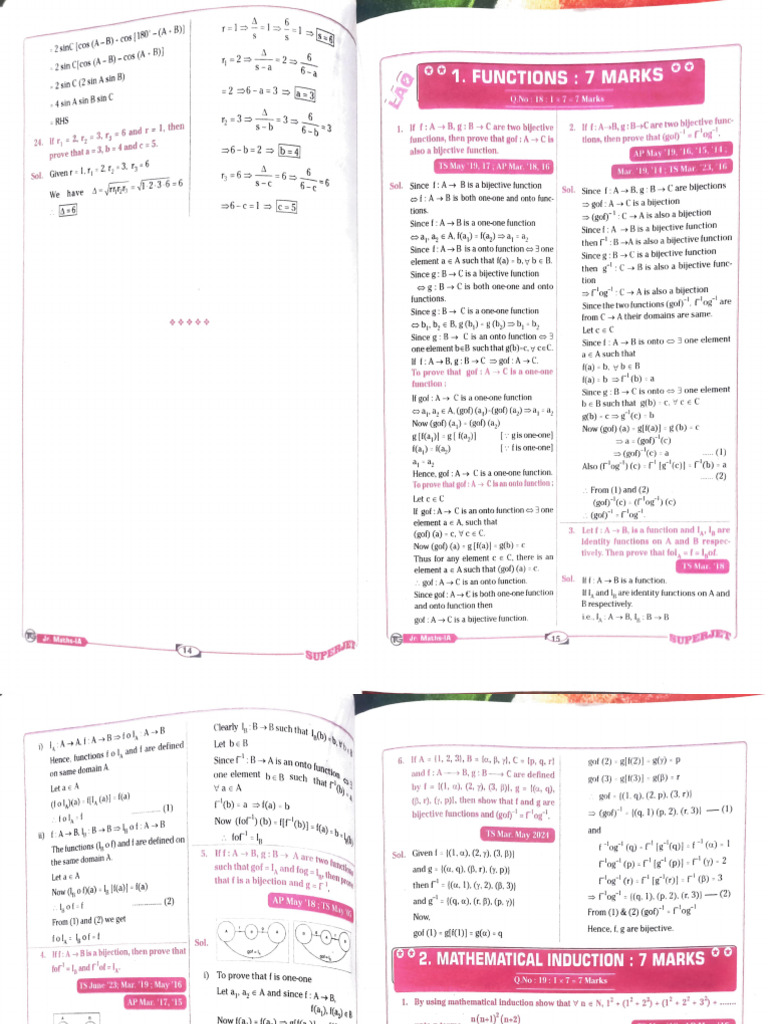 = 2 sinC [cos (A−B) - cos [180° − (A + B)]
= 2 sinC[cos (A−B) − cos (A+B)]
= 2 sin C (2 sin A sin B)
= 4 sin A sin B sin C
= RHS
24. If r₁ = 2, r₂ = 3, r₃ = 6 and r = 1, then
prove that a = 3, b = 4 and c = 5.
Sol. Given r = 1, r₁ = 2, r₂ = 3, r₃ = 6
We have Δ = √rr₁r₂r₃ = √1·2·3·6 = 6
∴ Δ = 6
r = 1 ⇒ Δ/s = 1 ⇒ 6/s = 1 ⇒ s = 6
r₁ = 2 ⇒ Δ/(s - a) = 2 ⇒ 6/(6 - a)
= 2 ⇒ 6 - a = 3 ⇒ a = 3
r₂ = 3 ⇒ Δ/(s - b) = 3 ⇒ 6/(6 - b) = 3
⇒ 6 - b = 2 ⇒ b = 4
r₃ = 6 ⇒ Δ/(s - c) = 6 ⇒ 6/(6 - c) = 6
⇒ 6 - c = 1 ⇒ c = 5
Jr. Maths-IA
14
SUPERJET
LAQ
1. FUNCTIONS : 7 MARKS
Q.No : 18 : 1 × 7 = 7 Marks
1. If f : A → B, g : B → C are two bijective
functions, then prove that gof : A → C is
also a bijective function.
TS May '19, 17 ; AP Mar. '18, 16
Sol. Since f : A → B is a bijective function
⇔ f : A → B is both one-one and onto func-
tions.
Since f : A → B is a one-one function
⇔ a₁, a₂ ∈ A, f(a₁) = f(a₂) ⇒ a₁ = a₂
Since f : A → B is a onto function ⇔ ∃ one
element a ∈ A such that f(a) = b, ∀ b ∈ B.
Since g : B → C is a bijective function
⇔ g : B → C is both one-one and onto
functions.
Since g : B → C is a one-one function
⇔ b₁, b₂ ∈ B, g (b₁) = g (b₂) ⇒ b₁ = b₂
Since g : B → C is an onto function ⇔ ∃
one element b∈B such that g(b)=c, ∀ c∈C.
If f : A → B, g : B → C ⇒ gof : A → C.
To prove that gof : A → C is a one-one
function :
If gof : A → C is a one-one function
⇔ a₁, a₂ ∈ A, (gof) (a₁)=(gof) (a₂) ⇒ a₁ = a₂
Now (gof) (a₁) = (gof) (a₂)
g [f(a₁)] = g [ f(a₂)] [ ∵ g is one-one]
f(a₁) = f(a₂) [ ∵ f is one-one]
a₁ = a₂
Hence, gof : A → C is a one-one function.
To prove that gof : A → C is an onto function :
Let c ∈ C
If gof : A → C is an onto function ⇔ ∃ one
element a ∈ A, such that
(gof) (a) = c, ∀ c ∈ C.
Now (gof) (a) = g [f(a)] = g(b) = c
Thus for any element c ∈ C, there is an
element a ∈ A such that (gof) (a) = c.
∴ gof : A → C is an onto function.
Since gof : A → C is both one-one function
and onto function then
gof : A → C is a bijective function.
2. If f : A→B, g : B→C are two bijective func-
tions, then prove that (gof)⁻¹ = f⁻¹og⁻¹.
AP May '19, '16, '15, '14 ;
Mar. '19, '14 ; TS Mar. '23, '16
Sol. Since f : A → B, g : B → C are bijections
⇒ gof : A → C is a bijection
⇒ (gof)⁻¹ : C → A is also a bijection
Since f : A → B is a bijective function
then f⁻¹ : B →A is also a bijective function
Since g : B → C is a bijective function
then g⁻¹ : C → B is also a bijective func-
tion
⇒ f⁻¹og⁻¹ : C → A is also a bijection
Since the two functions (gof)⁻¹, f⁻¹og⁻¹ are
from C → A their domains are same.
Let c ∈ C
Since f : A → B is onto ⇔ ∃ one element
a ∈ A such that
f(a) = b, ∀ b ∈ B
f(a) = b ⇒ f⁻¹(b) = a
Since g : B → C is onto ⇔ ∃ one element
b ∈ B such that g(b) = c, ∀ c ∈ C
g(b) = c ⇒ g⁻¹(c) = b
Now (gof) (a) = g[f(a)] = g (b) = c
⇒ a = (gof)⁻¹(c)
⇒ (gof)⁻¹(c) = a ...... (1)
Also (f⁻¹og⁻¹) (c) = f⁻¹ [g⁻¹(c)] = f⁻¹(b) = a
...... (2)
∴ From (1) and (2)
(gof)⁻¹(c) = (f⁻¹og⁻¹) (c)
∴ (gof)⁻¹ = f⁻¹og⁻¹.
3. Let f : A → B, is a function and I_A, I_B are
Identity functions on A and B respec-
tively. Then prove that foI_A = f = I_Bof.
TS Mar. '18
Sol. If f : A → B is a function.
If I_A and I_B are identity functions on A and
B respectively.
i.e., I_A : A → B, I_B : B → B
Jr. Maths-IA
15
SUPERJET
i) I_A : A → A, f : A → B ⇒ f o I_A : A → B
Hence, functions f o I_A and f are defined
on same domain A.
Let a ∈ A
(f o I_A)(a) = f[I_A (a)] = f(a)
∴ f o I_A = f ......... (1)
ii) f : A → B, I_B : B → B ⇒ I_B o f : A → B
The functions (I_B o f) and f are defined on
the same domain A.
Let a ∈ A
Now (I_B o f)(a) = I_B [f(a)] = f(a)
∴ I_B o f = f ......... (2)
From (1) and (2) we get
f o I_A = I_B o f = f
4. If f : A → B is a bijection, then prove that
fof⁻¹ = I_B and f⁻¹of = I_A.
TS June '23; Mar. '19 ; May '16
AP Mar. '17, '15
Clearly I_B : B → B such that I_B(b) = b, ∀ b∈B
Let b ∈ B
Since f⁻¹ : B → A is an onto function ⇔ ∃
one element b ∈ B such that f⁻¹(b) = a,
∀ a ∈ A
f⁻¹(b) = a ⇒ f(a) = b
Now (fof⁻¹) (b) = f[f⁻¹(b)] = f(a) = b = I_B(b)
∴ fof⁻¹ = I_B
5. If f : A → B, g : B → A are two functions
such that gof = I_A and fog = I_B, then prove
that f is a bijection and g = f⁻¹.
AP May '18 ; TS May
Sol.
gof = I_A
i) To prove that f is one-one
Let a₁, a₂ ∈ A and since f : A → B,
f(a₁), f(a₂) ∈ B
6. If A = {1, 2, 3}, B = {α, β, γ}, C = {p, q, r}
and f : A → B, g : B → C are defined
by f = {(1, α), (2, γ), (3, β)}, g = {(α, q),
(β, r), (γ, p)}, then show that f and g are
bijective functions and (gof)⁻¹ = f⁻¹og⁻¹.
TS Mar. May 2024
Sol. Given f = {(1, α), (2, γ), (3, β)}
and g = {(α, q), (β, r), (γ, p)}
then f⁻¹ = {(α, 1), (γ, 2), (β, 3)}
and g⁻¹ = {(q, α), (r, β), (p, γ)}
Now,
gof (1) = g[f(1)] = g(α) = q
gof (2) = g[f(2)] = g(γ) = p
gof (3) = g[f(3)] = g(β) = r
∴ gof = {(1, q), (2, p), (3, r)}
⇒ (gof)⁻¹ = {(q, 1) (p, 2), (r, 3)} — (1)
and
f⁻¹og⁻¹ (q) = f⁻¹ [g⁻¹(q)] = f⁻¹(α) = 1
f⁻¹og⁻¹ (p) = f⁻¹ [g⁻¹(p)] = f⁻¹(γ) = 2
f⁻¹og⁻¹ (r) = f⁻¹ [g⁻¹(r)] = f⁻¹(β) = 3
⇒ f⁻¹og⁻¹ = {(q, 1), (p, 2), (r, 3)} — (2)
From (1) & (2) (gof)⁻¹ = f⁻¹og⁻¹
Hence, f, g are bijective.
2. MATHEMATICAL INDUCTION : 7 MARKS
Q.No : 19 : 1 × 7 = 7 Marks
1. By using mathematical induction show that ∀ n ∈ N, 1² + (1² + 2²) + (1² + 2² + 3²) + .......
n(n+1)²(n+2)